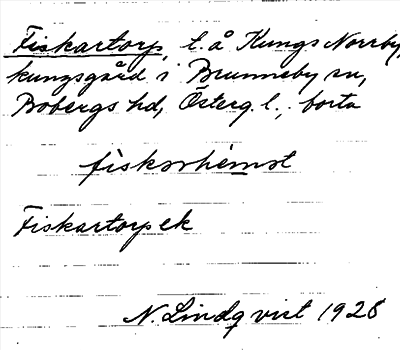 Fiskartorp, t. å Kungs Norrby
kungsgård i Brunneby sn,
Bobergs hd, Österg. l., borta
Fiskartorp ek
N. Lindqvist 1928